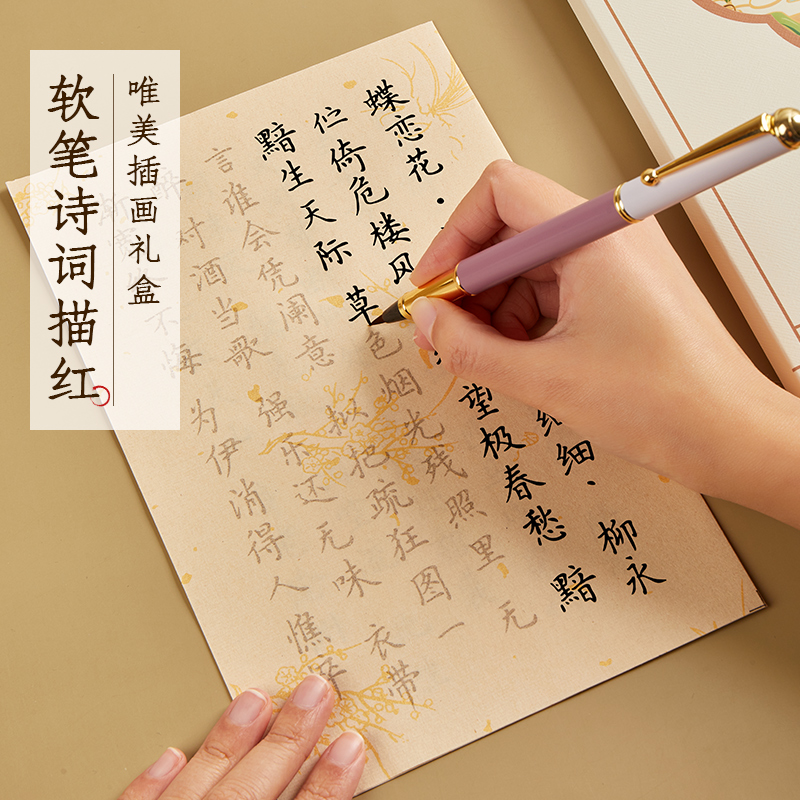 唯美插画礼盒
软笔诗词描红
蝶恋花·细细、柳永
伫倚危楼风望极春愁黯
黯生天际草色烟光残照里无
言谁会凭阑意拟把疏狂图一
醉对酒当歌强乐还无味衣带
渐宽不悔为伊消得人憔悴